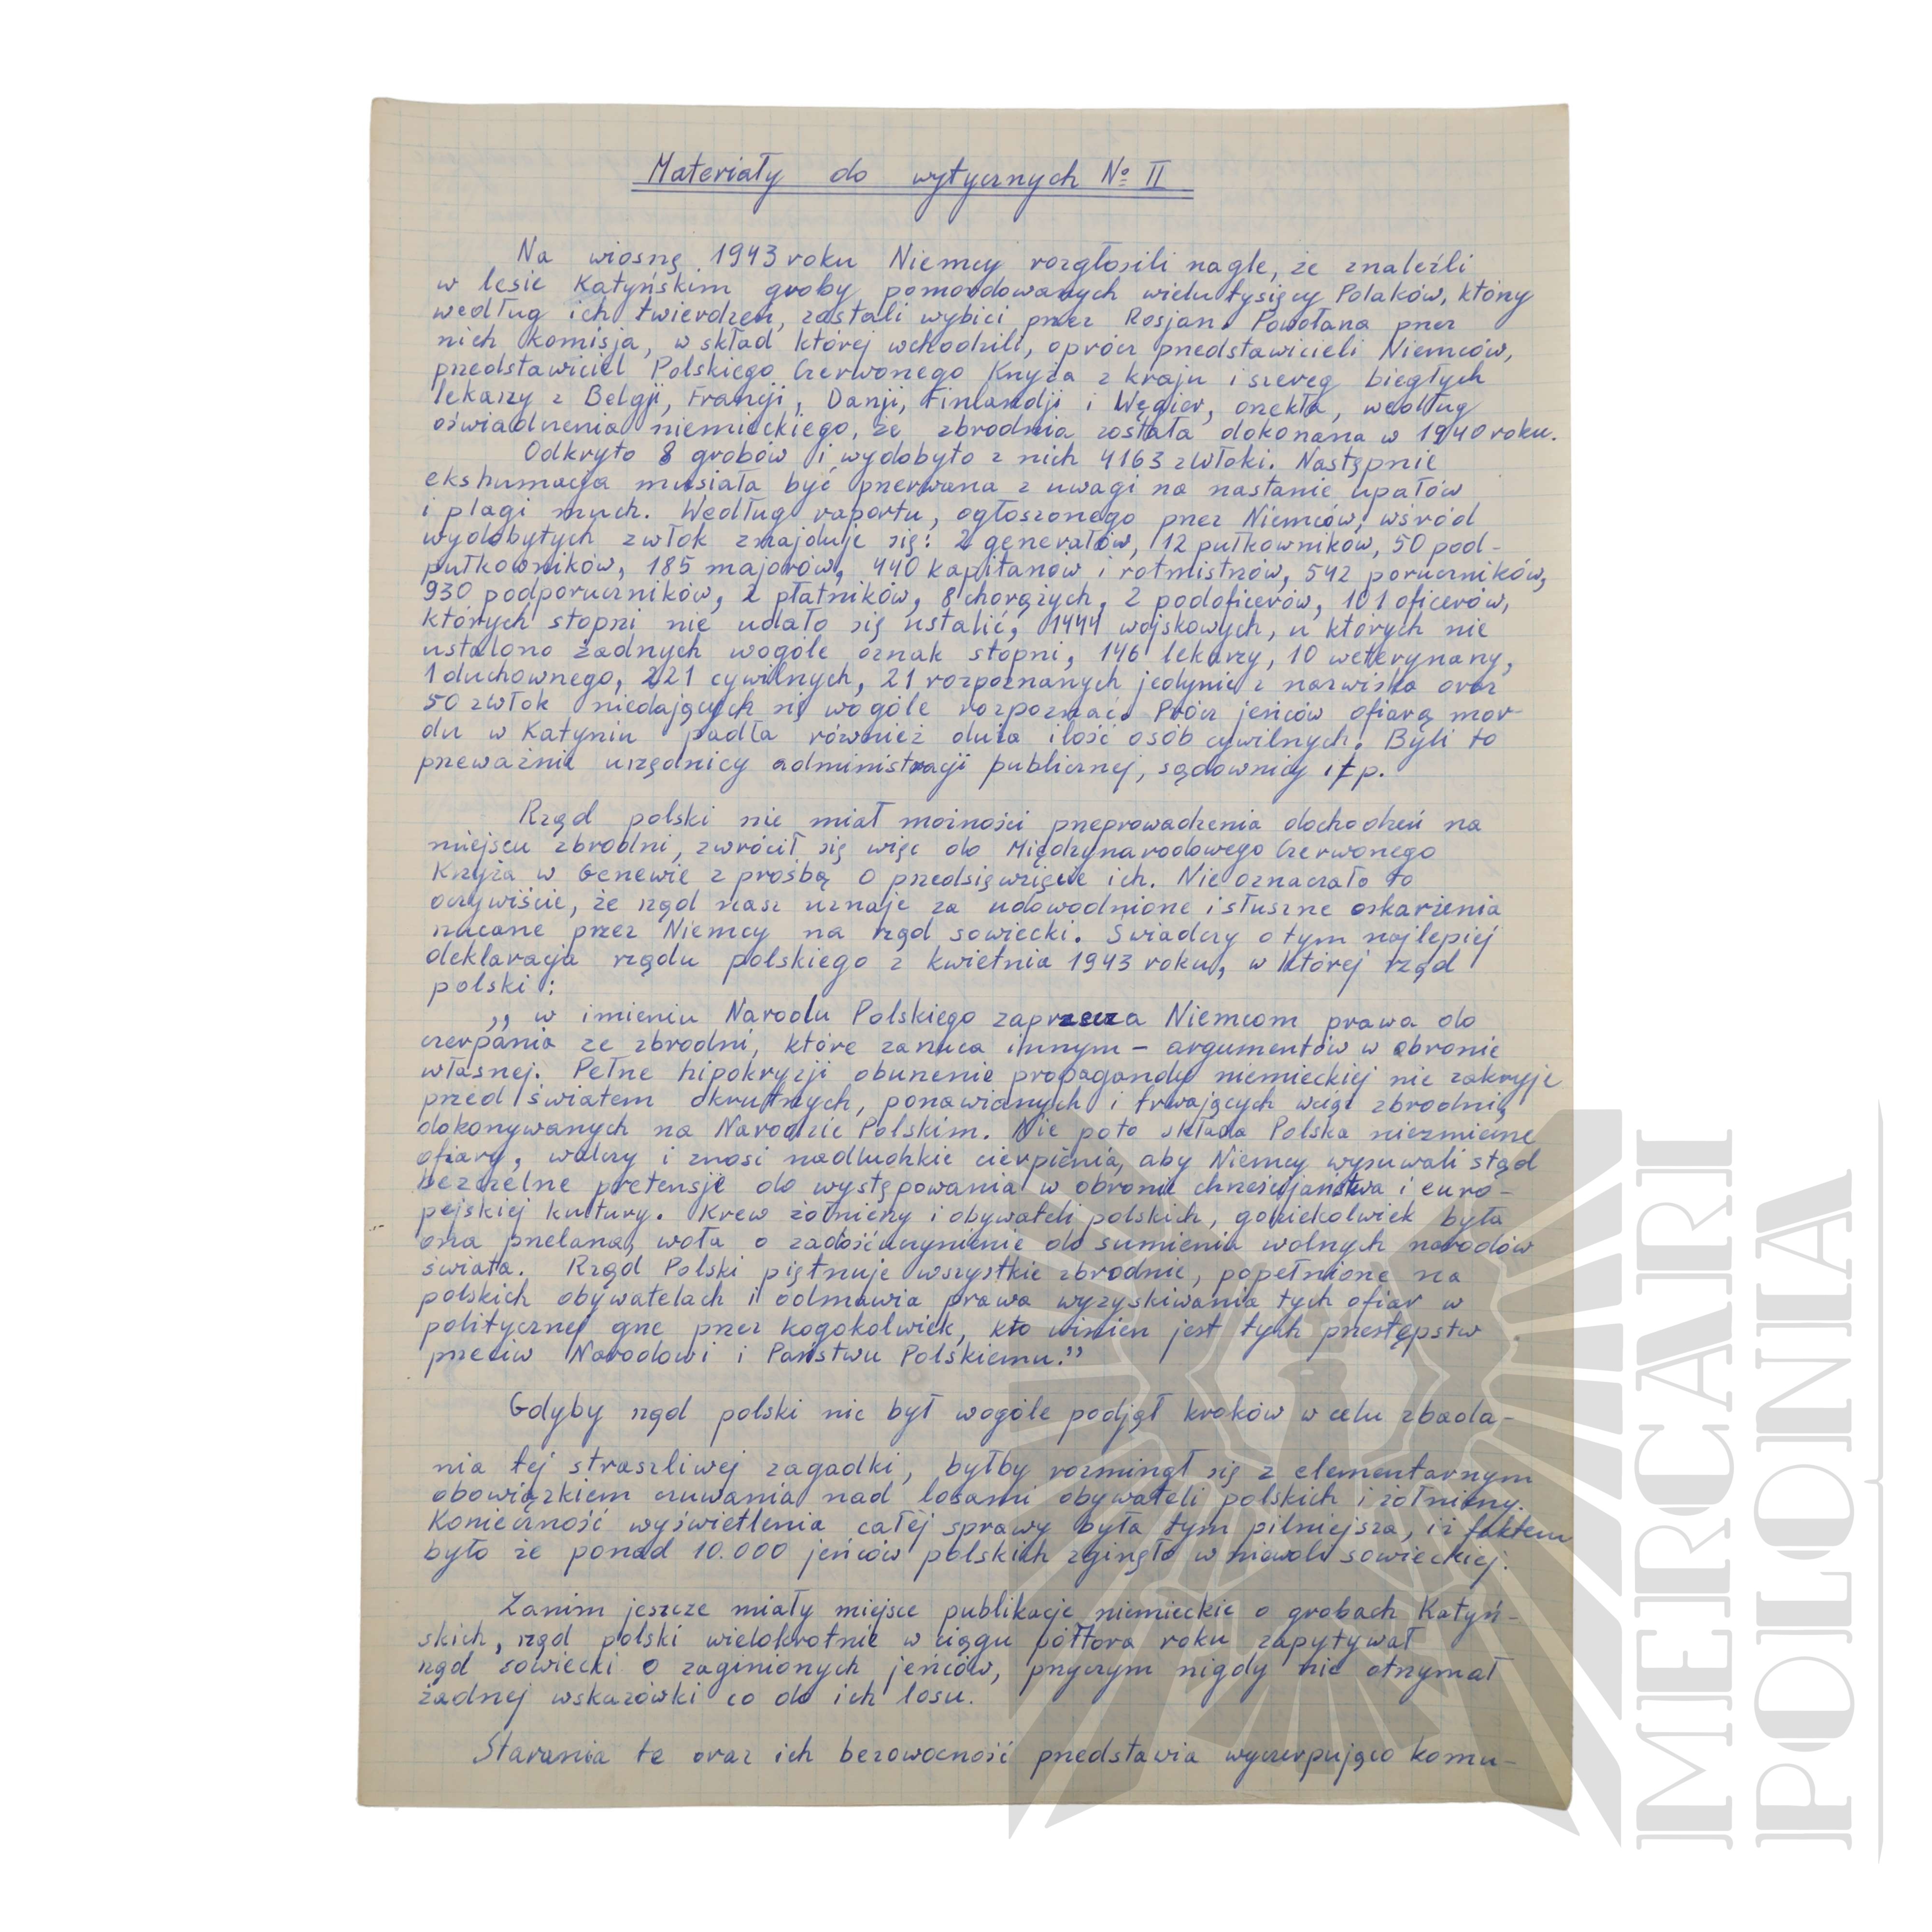 Materiały do wytycznych № II
Na wiosnę 1943 roku Niemcy rozgłosili nagle, że znaleźli
w lesie Katyńskim groby pomordowanych wielu tysięcy Polaków, którzy
według ich twierdzeń, zostali wybici przez Rosjan. Powołana przez
nich komisja, w skład której wchodzili, oprócz przedstawicieli Niemców,
przedstawiciel Polskiego Czerwonego Krzyża z kraju i szereg biegłych
lekarzy z Belgji, Francji, Danji, Finlandji i Węgier, orzekła, według
oświadczenia niemieckiego, że zbrodnia została dokonana w 1940 roku.
Odkryto 8 grobów i wydobyto z nich 4163 zwłoki. Następnie
ekshumacja musiała być przerwana z uwagi na nastanie upałów
i plagi much. Według raportu, ogłoszonego przez Niemców, wśród
wydobytych zwłok znajduje się: 2 generałów, 12 pułkowników, 50 pod-
pułkowników, 185 majorów, 440 kapitanów i rotmistrzów, 542 poruczników,
930 podporuczników, 2 płatników, 8 chorążych, 2 podoficerów, 101 oficerów,
których stopni nie udało się ustalić, 1444 wojskowych, u których nie
ustalono żadnych wogóle oznak stopni, 146 lekarzy, 10 weterynarzy,
1 duchownego, 221 cywilnych, 21 rozpoznanych jedynie z nazwiska oraz
50 zwłok niedających się wogóle rozpoznać. Prócz jeńców ofiarą mor-
du w Katyniu padła również duża ilość osób cywilnych. Byli to
przeważnie urzędnicy administracji publicznej, sądownicy itp.
Rząd polski nie miał możności przeprowadzenia dochodzeń na
miejscu zbrodni, zwrócił się więc do Międzynarodowego Czerwonego
Krzyża w Genewie z prośbą o przedsięwzięcie ich. Nie oznaczało to
oczywiście, że rząd nasz uznaje za udowodnione i słuszne oskarżenia
rzucane przez Niemcy na rząd sowiecki. Świadczy o tym najlepiej
deklaracja rządu polskiego z kwietnia 1943 roku, w której rząd
polski:
„ w imieniu Narodu Polskiego zaprzecza Niemcom prawa do
czerpania ze zbrodni, które zarzuca innym – argumentów w obronie
własnej. Pełne hipokryzji oburzenie propagandy niemieckiej nie zakryje
przed światem okrutnych, ponawianych i trwających wciąż zbrodni,
dokonywanych na Narodzie Polskim. Nie poto składa Polska niezmierne
ofiary, walczy i znosi nadludzkie cierpienia, aby Niemcy wysuwali stąd
bezczelne pretensje do występowania w obronie chrześcijaństwa i euro-
pejskiej kultury. Krew żołnierzy i obywateli polskich, gdziekolwiek była
ona przelana, woła o zadośćuczynienie do sumienia wolnych narodów
świata. Rząd Polski piętnuje wszystkie zbrodnie, popełnione na
polskich obywatelach i odmawia prawa wyzyskiwania tych ofiar w
politycznej grze przez kogokolwiek, kto winien jest tych przestępstw
przeciw Narodowi i Państwu Polskiemu.”
Gdyby rząd polski nie był wogóle podjął kroków w celu zbada-
nia tej straszliwej zagadki, byłby rozminął się z elementarnym
obowiązkiem czuwania nad losami obywateli polskich i żołnierzy.
Konieczność wyświetlenia całej sprawy była tym pilniejsza, iż faktem
było że ponad 10.000 jeńców polskich zginęło w niewoli sowieckiej.
Zanim jeszcze miały miejsce publikacje niemieckie o grobach Katyń-
skich, rząd polski wielokrotnie w ciągu półtora roku zapytywał
rząd sowiecki o zaginionych jeńców, przyczym nigdy nie otrzymał
żadnej wskazówki co do ich losu.
Starania te oraz ich bezowocność przedstawia wyczerpująco komu-
MERCARI
POLONIA